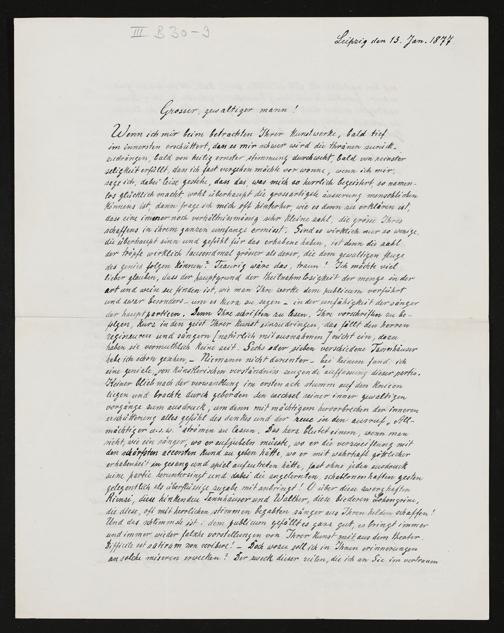 III B 30-9
Leipzig den 13. Jan. 1877
Grosser, gewaltiger mann!
Wenn ich mir beim betrachten Ihrer Kunstwerke, bald tief
im innersten erschüttert, dass es mir schwer wird die thränen zurück-
zudrängen, bald von heilig ernster stimmung durchweht, bald von reinster
seligkeit erfüllt, dass ich fast vergehen möchte vor wonne, wenn ich mir,
sage ich, dabei leise gestehe, dass das, was mich so herrlich begeistert so namen-
los glücklich macht wohl überhaupt die grossartigste äusserung menschlichen
könnens ist, dann frage ich mich oft hinterher, wie es denn zu erklären ist,
dass eine immer noch verhältnissmässig sehr kleine zahl, die grösse Ihres
schaffens in ihrem ganzen umfange ermisst. Sind es wirklich nur so wenige,
die überhaupt sinn und gefühl für das erhabene haben, ist denn die zahl
der tröpfe werklich tausendmal grösser als derer, die dem gewaltigen fluge
des genies folgen können? Traurig wäre das, traun! Ich möchte viel
lieber glauben, dass der hauptgrund der theilnahmlosigkeit der menge in der
art und weise zu finden ist, wie man Ihre werke dem publicum vorführt
und zwar besonders - um es kurz zu sagen - in der unfähigkeit der sänger
der hauptpartieen. Denn Ihre schriften zu lesen, Ihre vorschriften zu be-
folgen, kurz in den geist Ihrer Kunst einzudringen, das fällt den herren
regisseuren und sängern (natürlich mit ausnahmen) nicht ein, dazu
haben sie vermuthlich keine zeit. Sechs oder sieben verschiedene Tannhäuser
habe ich schon gesehen, - Niemann nicht darunter - bei keinem fand ich
eine geniale, von künstlerischem verständniss zeugende auffassung dieser partie.
Keiner blieb nach der verwandlung im ersten act stumm auf den knieen
liegen und brachte durch geberden den wechsel seiner inner gewaltigen
vorgänge zum ausdruck, um dann mit mächtigem hervorbrechen der inneren
erschütterung alles gefühl des dankes und der reue in den ausruf „All-
mächtiger u.s.w." strömen zu lassen. Das herz blutet einem, wenn man
sieht, wie ein sänger, wo er aufjubeln müsste, wo er die verzweiflung mit
den schärfsten accenten kund zu geben hätte, wo er mit wahrhaft göttlicher
erhabenheit im gesang und spiel aufzutreten hätte, fast ohne jeden ausdruck
seine partie heruntersingt und dabei die angelernten, schablonenhaften gesten
gelegentlich als überflüssige zugabe mit anbringt! O über diese zwerghaften
Rienzi, diese hinkenden Tannhäuser und Walther, diese biederen Lohengrine,
die diese, oft mit herrlichen stimmen begabten sänger aus Ihren helden schaffen!
Und das schlimmste ist: dem publicum gefällt es ganz gut, es bringt immer
und immer wieder falsche vorstellungen von Ihrer Kunst mit aus dem theater.
Difficile est satiram non scribere! - Doch wozu soll ich in Ihnen erinnerungen
an solche misèren erwecken? Der zweck dieser zeilen, die ich an Sie im vertrauen